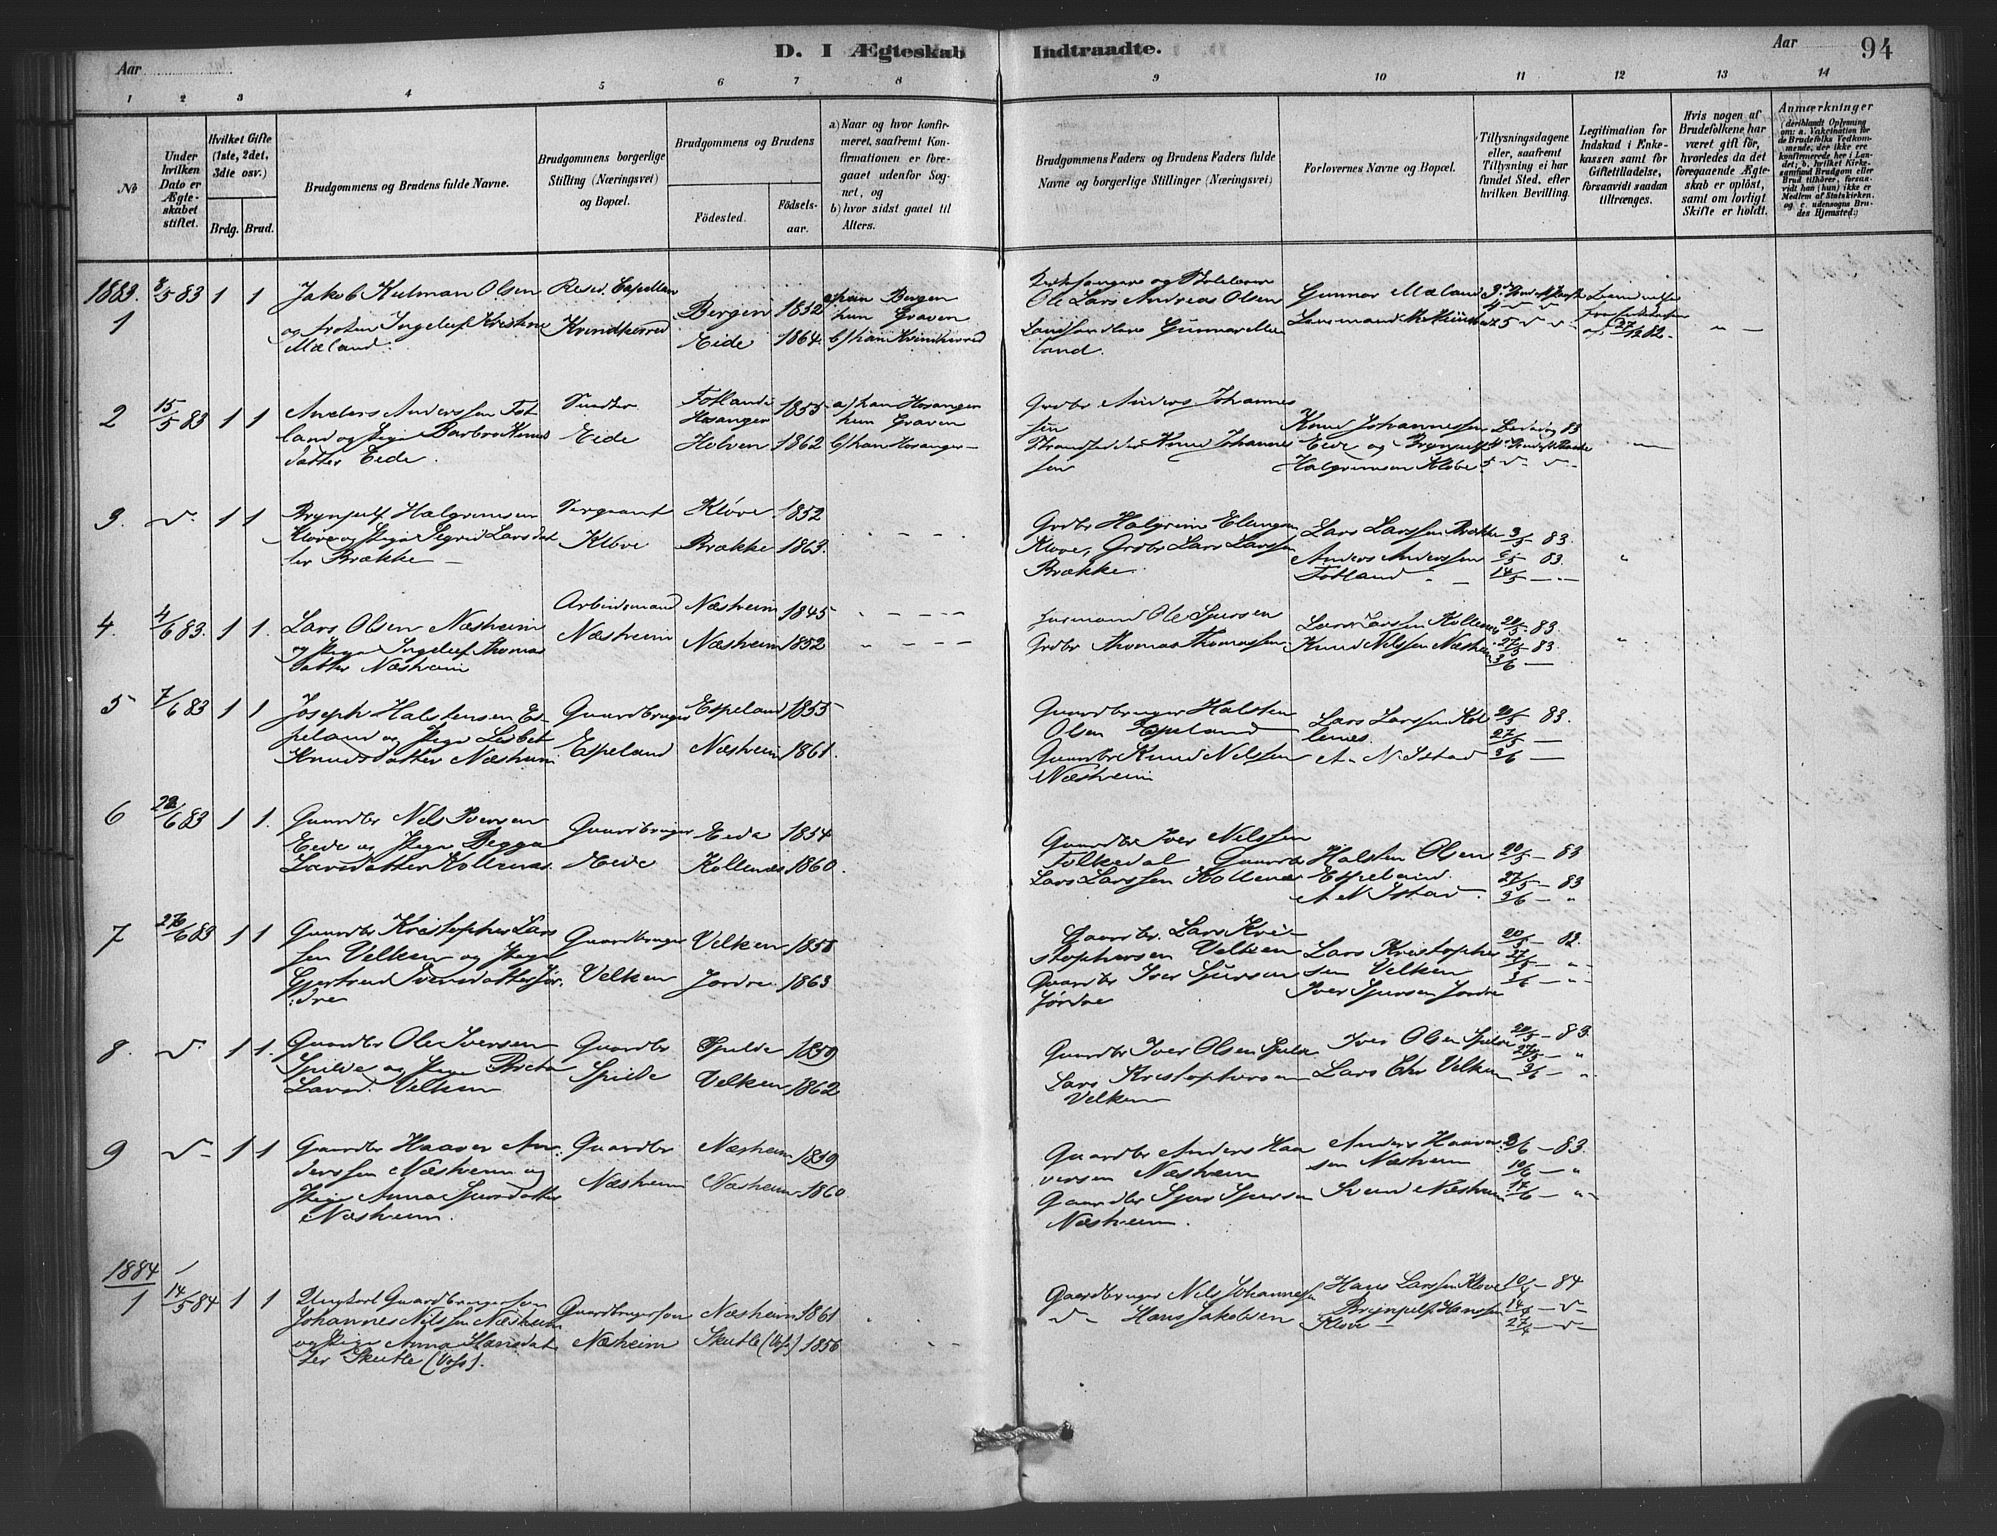 D. I Ægteskab Indtraadte.
Aar
Aar
94
1 2 3 4 5 6 7 8 9 10 11 12 13 14
No
Under hvilken Dato er Ægteskabet stiftet.
Hvilket Gifte (1ste, 2det, 3dte osv.)
Brdg. Brud.
Brudgommens og Brudens fulde Navne.
Brudgommens borgerlige Stilling (Næringsvei) og Bopæl.
Brudgommens og Brudens
Födested.
Födsels-aar.
a) Naar og hvor konfirmeret, saafremt Konfirmationen er foregaaet udenfor Sognet, og
b) hvor sidst gaaet til Alters.
Brudgommens Faders og Brudens Faders fulde Navne og borgerlige Stillinger (Næringsvei)
Forlovernes Navne og Bopæl.
Tillysningsdagene eller, saafremt Tillysning ei har fundet Sted, efter hvilken Bevilling.
Legitimation for Indskud i Enkekassen samt for Giftetilladelse, forsaavidt saadan tiltrænges.
Hvis nogen af Brudefolkene har været gift før, hvorledes da det foregaaende Ægteskab er oplöst, samt om lovligt Skifte er holdt.
Anmærkninger
(deriblandt Oplysning om: a. Vakcination for de Brudefolks Vedkommende, der ikke ere konfirmerede her i Landet; b. hvilket Kirkesamfund Brudgom eller Brud tilhörer, forsaavidt han (hun) ikke er Medlem af Statskirken, og c. udensogns Brudes Hjemsted.)
1883.
1 8/5 83 1 1 Jakob Kulman Olsen
og Ingeleif Kristine
Mæland.
Resid. Capellan
Kvindherred
Bergen 1852
Eide 1864.
a) han Bergen
hun Graven
b) han Kvindherred
Kirkesanger og Skolelærer
Ole Lars Andreas Olsen
Landhandler Gunnar Mæland.
Gunnar Mæland
Lensmand
2 15/5 83 1 1 Anders Anderssen Fotland
og Pige Barbro Knudsdatter Eide.
Eide
Fotland
Hosanger 1855
Helven 1862
a) han Hosanger
hun Graven
b) han Hosanger
Grdbr Anders Johannessen
Knud Johannessen
Knud Johannessen
Eide og Brynjulf
Halgrimsen Kløve
3. 1 1 Brynjulf Halgrimsen
Kløve og Pige Sigrid Larsdatter
Brække
Sergeant
Kløve
Kløve 1852
Brække 1863.
Grdbr Halgrim
Kløve, Grdbr Lars Larssen
Brække.
Lars Larssen Brække
Anders Anderssen
Fotland
3/5 83.
6/5 83.
14/5
4. 4/6 83. 1 1. Lars Olsen Næsheim
og Pige Ingeleif Thomasdatter
Næsheim
Arbeidsmand
Næsheim
Næsheim 1845
Næsheim 1852
Husmand Ole Sjursen
Grdbr Thomas Thomassen
Lars Larssen Kollenes
Knud Nilssen Næsheim
20/5 83.
27/5 83
3/6
5 7/6 83 1 1 Joseph Halstensen Espeland
og Pige Lisbet
Knudsdatter Næsheim
Gaardbruger
Espeland
Espeland 1855
Næsheim 1861.
Gaardbruger Halsten
Olsen Espeland
Gaardbr Knud Nilssen
Næsheim
Lars Larssen Kollenes.
A. N. Istad
20/5 83.
27/5
3/6
6 22/6 83 1 1. Gaardbr Nels Iversen
Eide og Pige Begga
Larsdatter Kollenæs.
Gaardbruger
Eide
Eide 1854
Kollenæs 1860.
Gaardbr Iver Nilssen
Folkedal Gaardbr
Lars Larssen Kollenæs
Halsten Olsen
Espeland.
A N Istad.
20/5 83
27/5 83
3/6
7 26/6 83 1 1 Gaardbr Kristopher Larssen
Velken og Pige
Gjertrud Iversdatter Jørdre
Gaardbruger
Velken
Velken 1858
Jørdre. 1863
Gaardbr. Lars Kristophersen
Velken
Gaardbr Iver Sjursen
Jørdre
Lars Kristophersen
Velken
Iver Sjursen Jørdre
20/5 83.
27/5
3/6
8. 1 1. Gaardbr Ole Iversen
Spilde og Pige Brita
Larsd. Velken
Gaardbr
Spilde
Spilde 1859
Velken 1862
Gaardbr Iver Olsen Spilde
Lars Kristophersen
Velken
Iver Olsen Spilde
Lars Chr Velken
20/5 83.
27/5
3/6
9 1 1 Gaardbr Haaver Anderssen
Næsheim og
Pige Anna Sjursdatter
Næsheim.
Gaardbr
Næsheim
Næsheim 1859
Næsheim 1860
Gaardbr Anders Haaversen
Næsheim
Gaardbr Sjur Sjursen
Næsheim.
Anders Haaversen
Næsheim
Svend Næsheim
3/6 83.
10/6
17/6
1884
1 14/5 84 1 1 Ungkarl Gaardbrugersøn
Johannes Nilssen Næsheim
og Pige Anna Hansdatter
Skutle (Voss).
Gaardbrugersøn
Næsheim
Næsheim 1861
Skutle (Voss) 1856
Gaardbruger Nils Johannessen
Hans Jakobsen
Hans Larssen Kløve
Brynjulf Hanssen
Kløve
84